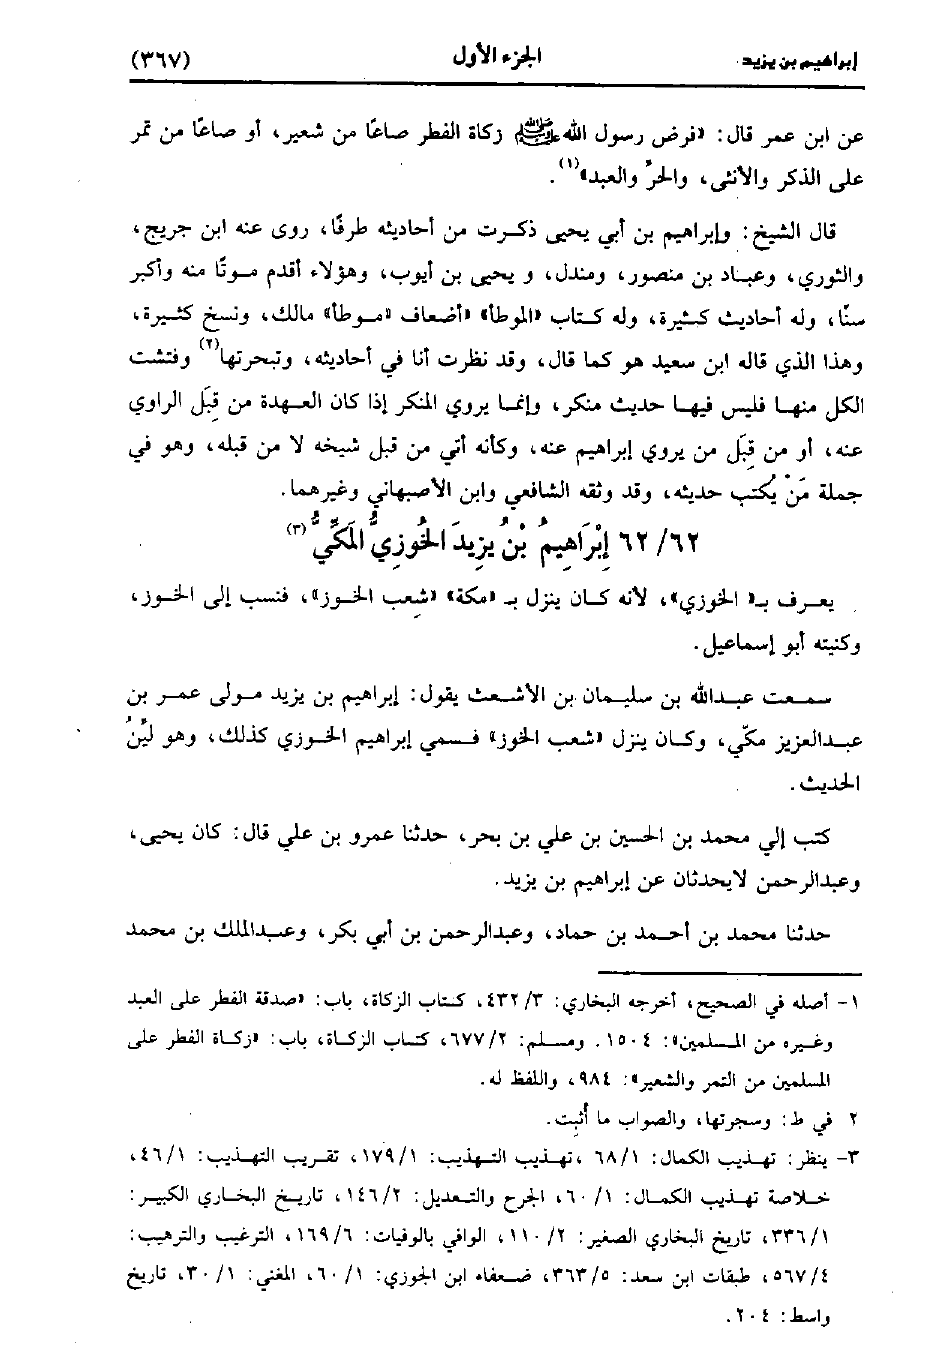 إبراهيم بن يزيد الجزء الأول (٣٦٧)
عن ابن عمر قال: «فرض رسول الله ﷺ زكاة الفطر صاعًا من شعير، أو صاعًا من تمر
على الذكر والأنثى، والحرِّ والعبد»(١).
قال الشيخ: وإبراهيم بن أبي يحيى ذكرت من أحاديثه طرفًا، روى عنه ابن جريج،
والثوري، وعباد بن منصور، ومندل، و يحيى بن أيوب، وهؤلاء أقدم موتًا منه وأكبر
سنًّا، وله أحاديث كثيرة، وله كتاب «الموطأ» «أضعاف «موطأ» مالك، ونسخ كثيرة،
وهذا الذي قاله ابن سعيد هو كما قال، وقد نظرت أنا في أحاديثه، وتبحرتها(٢) وفتشت
الكل منها فليس فيها حديث منكر، وإنما يروي المنكر إذا كان العهدة من قِبَل الراوي
عنه، أو من قِبَل من يروي إبراهيم عنه، وكأنه أتي من قبل شيخه لا من قبله، وهو في
جملة مَنْ يُكتب حديثه، وقد وثقه الشافعي وابن الأصبهاني وغيرهما.
٦٢/ ٦٢ إِبْرَاهِيمُ بْنُ يزِيدَ الخُوزِيُّ المَكِّيُّ(٣)
يعرف بـ« الخوزي»، لأنه كان ينزل بـ «مكة» «شِعب الخوز»، فنسب إلى الخوز،
وكنيته أبو إسماعيل.
سمعت عبدالله بن سليمان بن الأشعث يقول: إبراهيم بن يزيد مولى عمر بن
عبدالعزيز مكّي، وكان ينزل «شعب الخوز» فسمي إبراهيم الخوزي كذلك، وهو ليِّنُ
الحديث.
كتب إلي محمد بن الحسين بن علي بن بحر، حدثنا عمرو بن علي قال: كان يحيى،
وعبدالرحمن لايحدثان عن إبراهيم بن يزيد.
حدثنا محمد بن أحمد بن حماد، وعبدالرحمن بن أبي بكر، وعبدالملك بن محمد
١- أصله في الصحيح، أخرجه البخاري: ٤٣٢/٣، كتاب الزكاة، باب: «صدقة الفطر على العبد
وغيره من المسلمين»: ١٥٠٤. ومسلم: ٦٧٧/٢، كتاب الزكاة، باب: «زكاة الفطر على
المسلمين من التمر والشعير»: ٩٨٤، واللفظ له.
٢ في ط: وسجرتها، والصواب ما أُثبِت.
٣- ينظر: تهذيب الكمال: ٦٨/١ ،تهذيب التهذيب: ١٧٩/١، تقريب التهذيب: ٤٦/١،
خلاصة تهذيب الكمال: ٦٠/١، الجرح والتعديل: ١٤٦/٢، تاريخ البخاري الكبير:
٣٣٦/١، تاريخ البخاري الصغير: ١١٠/٢، الوافي بالوفيات: ١٦٩/٦، الترغيب والترهيب:
٥٦٧/٤، طبقات ابن سعد: ٣٦٣/٥، ضعفاء ابن الجوزي: ٦٠/١، المغني: ٣٠/١، تاريخ
واسط: ٢٠٤.